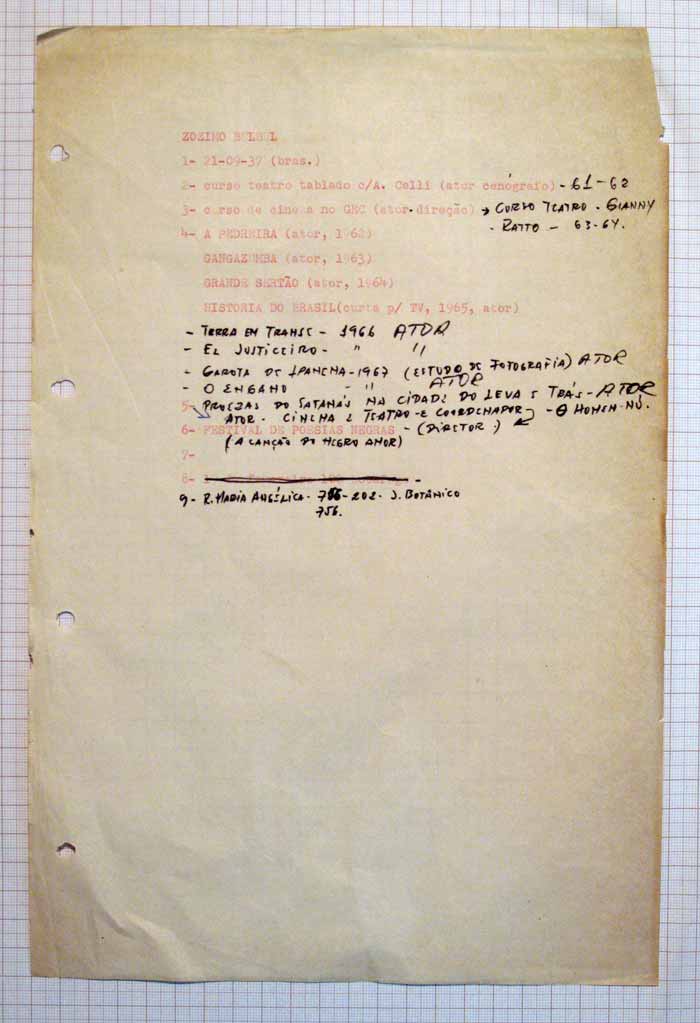 ZOZIMO BULBUL
1- 21-09-37 (bras.)
2- curso teatro tablado c/A. Celli (ator cenógrafo) - 61-62
3- curso de cinema no GEC (ator-direção) → CURSO TEATRO - GIANNY
- RATTO - 63-64.
4- A PEDREIRA (ator, 1962)
GANGAZUMBA (ator, 1963)
GRANDE SERTÃO (ator, 1964)
HISTORIA DO BRASIL(curta p/ TV, 1965, ator)
- TERRA EM TRANSE - 1966 ATOR
- EL JUSTICEIRO - " "
- GAROTA DE IPANEMA - 1967 (ESTUDO DE FOTOGRAFIA) ATOR
- O ENGANO - " ATOR
PROEZAS DO SATANÁS NA CIDADE DO LEVA E TRÁS - ATOR
5- ATOR - CINEMA E TEATRO - E COORDENADOR - O HOMEM NÚ.
6- FESTIVAL DE POESIAS NEGRAS - (DIRETOR)
(A CANÇÃO DO NEGRO AMOR)
7-
8- -
9- R. MARIA ANGÉLICA - 756 - 202 - J. BOTÂNICO
756.